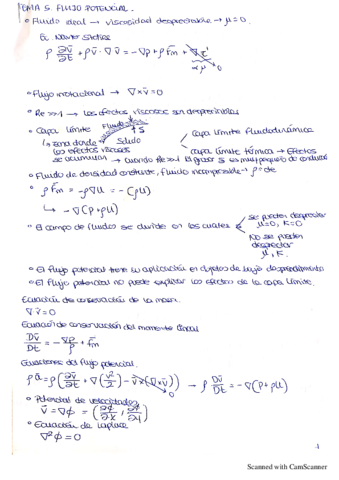 TEMA 5. FLUJO POTENCIAL.
° Fluido ideal → viscosidad despreciable → μ = 0.
Ec. Navier Stokes
ρ ∂v̄/∂t + ρ v̄ · ∇v̄ = -∇p + ρ F̄m + ∇τ̄' → 0
α μ
° Flujo irrotacional → ∇×v̄ = 0
° Re >> 1 → los efectos viscosos son despreciables
° Capa límite Fluido δ Capa límite Fluidodinámica
↳ zona donde Sólido
los efectos viscosos Capa límite térmica → Efectos
se acumulan → cuando Re >> 1 el δ es muy pequeño de
° Fluido de densidad constante, fluido incompresible → ρ = cte
° ρ F̄m = -ρ∇U = -(ρU)
↳ -∇(p + ρU)
° El campo de fluidos se divide en los cuales se pueden despreciar μ=0, K=0
No se pueden despreciar μ, K.
° El flujo potencial tiene su aplicación en objetos de
° El flujo potencial no puede explicar los efectos de la capa límite.
Ecuación de conservación de la masa.
∇v̄ = 0
Ecuación de conservación del momento lineal
Dv̄/Dt = -∇p/ρ + F̄m
Ecuaciones del flujo potencial.
ρā = ρ(∂v̄/∂t + ∇(v²/2) - v̄×(∇×v̄)) → ρ Dv̄/Dt = -∇(p+ρU)
0
° Potencial de velocidades
v̄ = ∇φ = (∂φ/∂x, ∂φ/∂y)
° Ecuación de Laplace
∇²φ = 0
1
Scanned with CamScanner